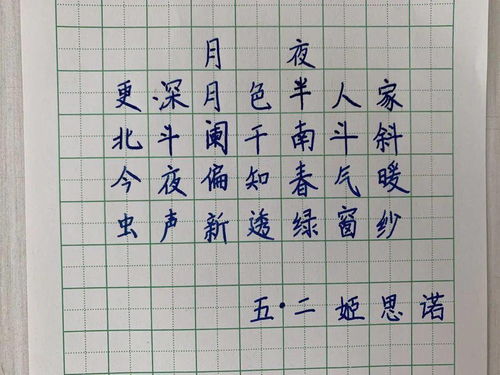 月 夜
更深月色半人家
北斗阑干南斗斜
今夜偏知春气暖
虫声新透绿窗纱
五·二 姬思诺